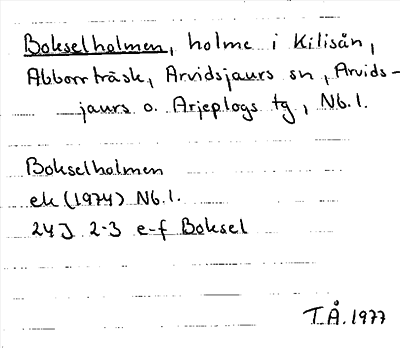 Bokselholmen, holme i Kilisån,
Abborrträsk, Arvidsjaurs sn, Arvids-
jaurs o. Arjeplogs tg, Nb.l.
Bokselholmen
ek (1974) Nb.l.
24J 2-3 e-f Boksel
T.Å. 1977